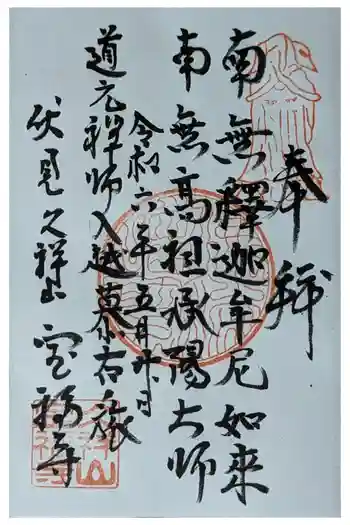 奉拝
南無釋迦牟尼如来
南無高祖承陽大師
令和六年五月廿日
道元禅師入越慕古旅
伏見久祥山 宝福寺